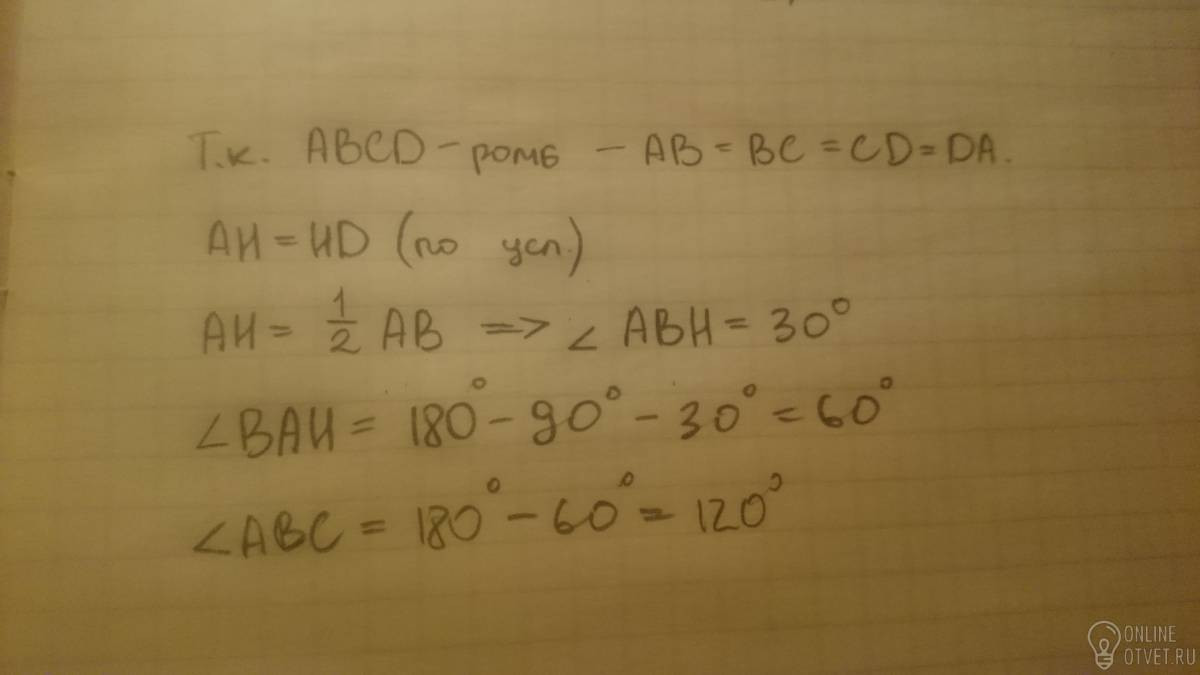 Т.к. ABCD – ромб – AB = BC = CD = DA.
AH = HD (по усл.)
AH = 1/2 AB => ∠ ABH = 30°
∠BAH = 180° – 90° – 30° = 60°
∠ABC = 180° – 60° = 120°
ONLINE
OTVET.RU